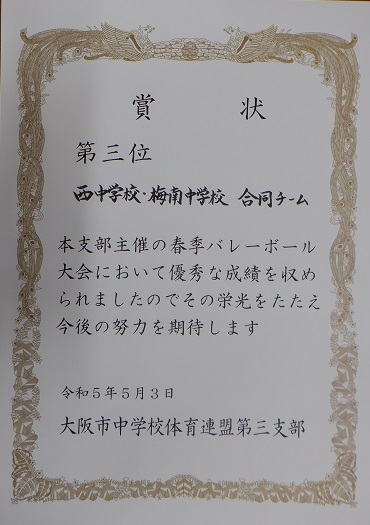 賞状
第三位
西中学校・梅南中学校 合同チーム
本支部主催の春季バレーボール
大会において優秀な成績を収め
られましたのでその栄光をたたえ
今後の努力を期待します
令和5年5月3日
大阪市中学校体育連盟第三支部